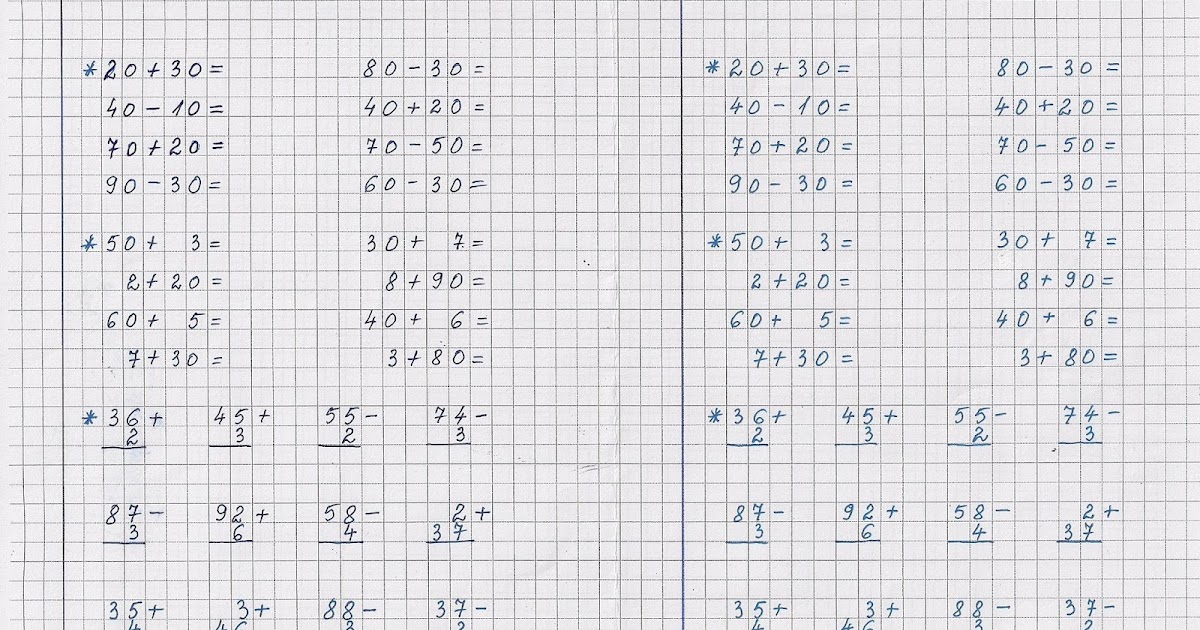 *20+30= 80-30= *20+30= 80-30=
40-10= 40+20= 40-10= 40+20=
70+20= 70-50= 70+20= 70-50=
90-30= 60-30= 90-30= 60-30=
*50+ 3= 30+ 7= *50+ 3= 30+ 7=
2+20= 8+90= 2+20= 8+90=
60+ 5= 40+ 6= 60+ 5= 40+ 6=
7+30= 3+80= 7+30= 3+80=
*36+ 45+ 55- 74- *36+ 45+ 55- 74-
2 3 2 3 2 3 2 3
87- 92+ 58- 2+ 87- 92+ 58- 2+
3 6 4 37 3 6 4 37
35+ 3+ 88- 37- 35+ 3+ 88- 37-